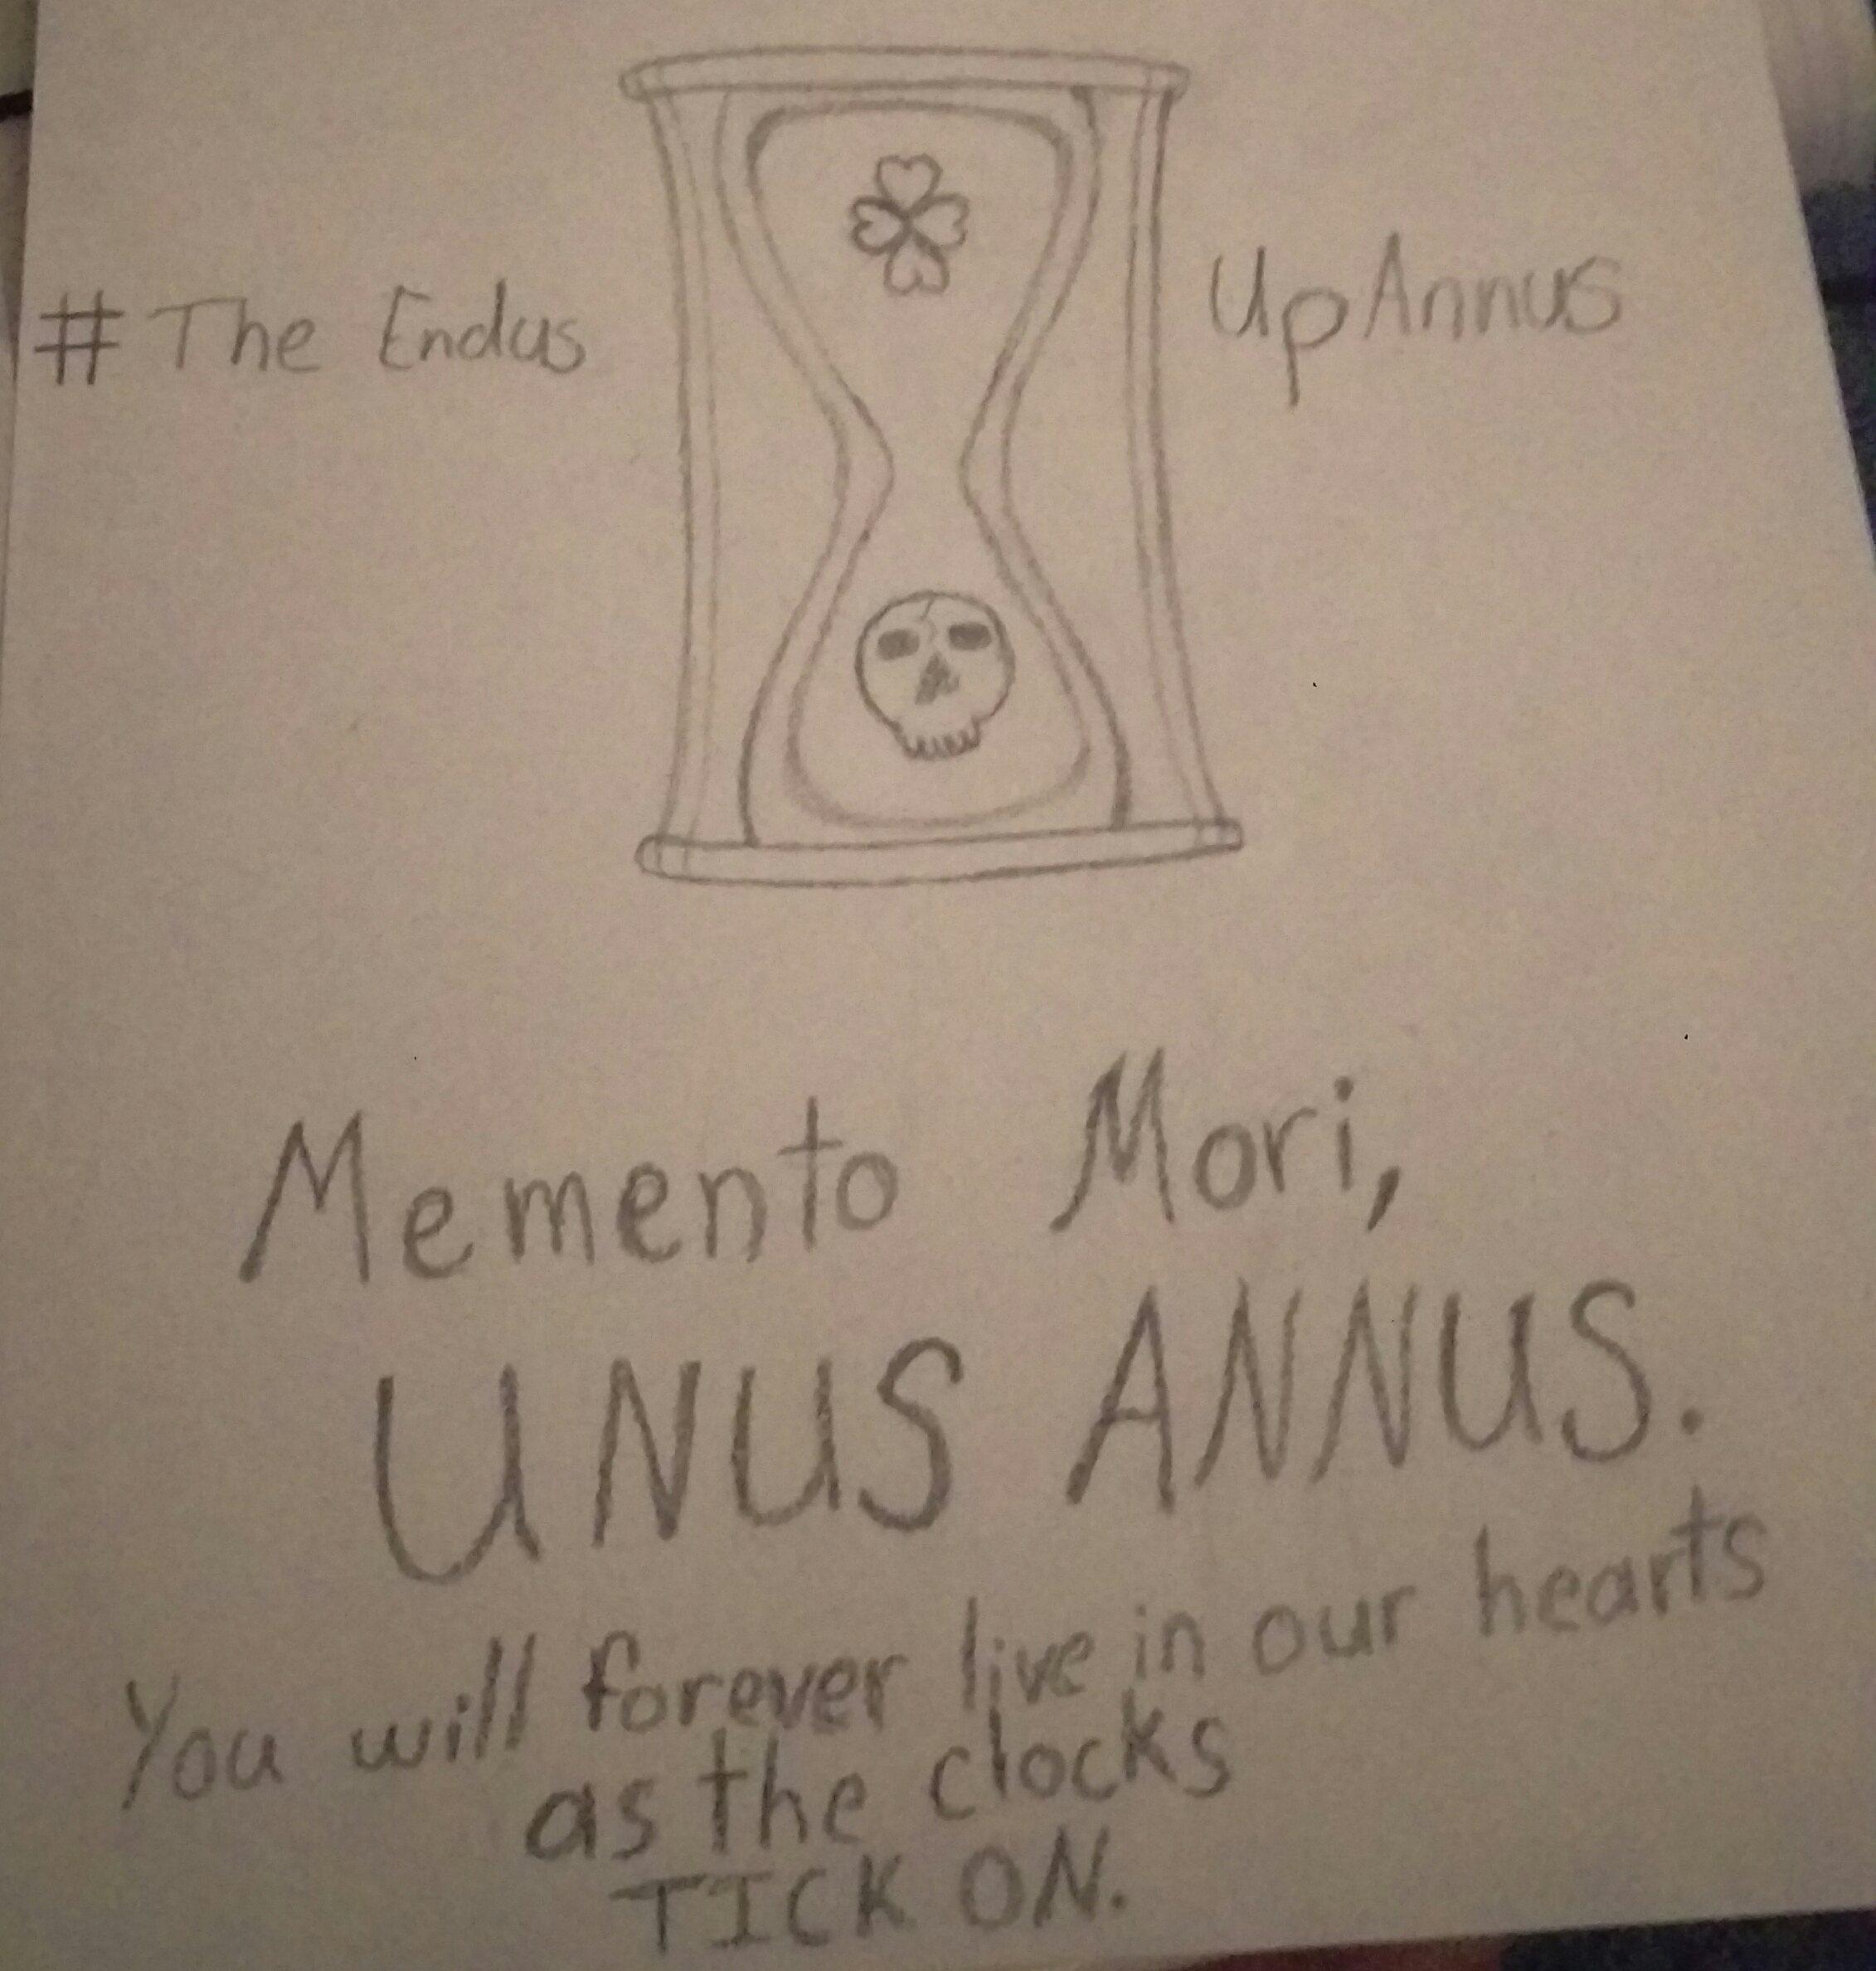 # The Endus UpAnnus
Memento Mori,
UNUS ANNUS.
You will forever live in our hearts
as the clocks
TICK ON.